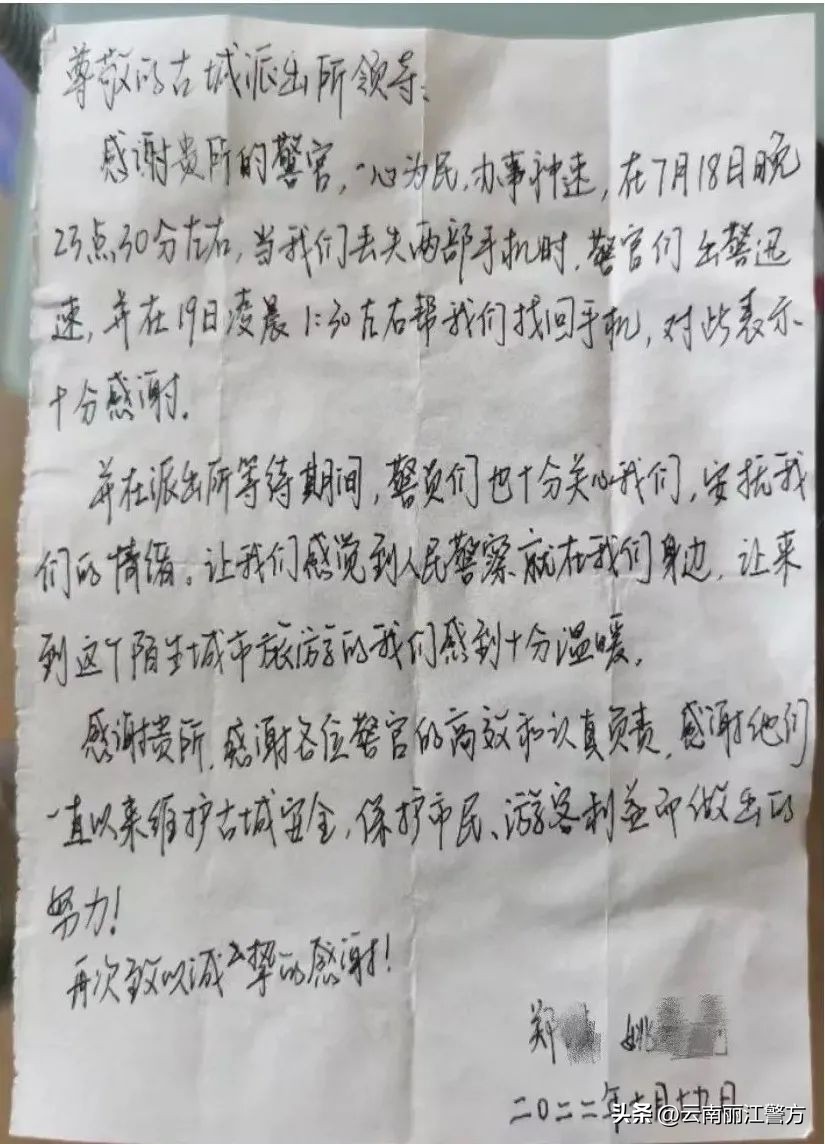 尊敬的古城派出所领导:
感谢贵所的警官,一心为民,办事神速,在7月18日晚
23点30分左右,当我们丢失两部手机时,警官们出警迅
速,并在19日凌晨1:30左右帮我们找回手机,对此表示
十分感谢.
并在派出所等待期间,警员们也十分关心我们,安抚我
们的情绪。让我们感觉到人民警察就在我们身边,让来
到这个陌生城市旅游的我们感到十分温暖.
感谢贵所,感谢各位警官的高效和认真负责,感谢他们
一直以来维护古城安全,保护市民、游客利益而做出的
努力!
再次致以诚挚的感谢!
郑 姚
二〇二二年七月十九日
头条@云南丽江警方